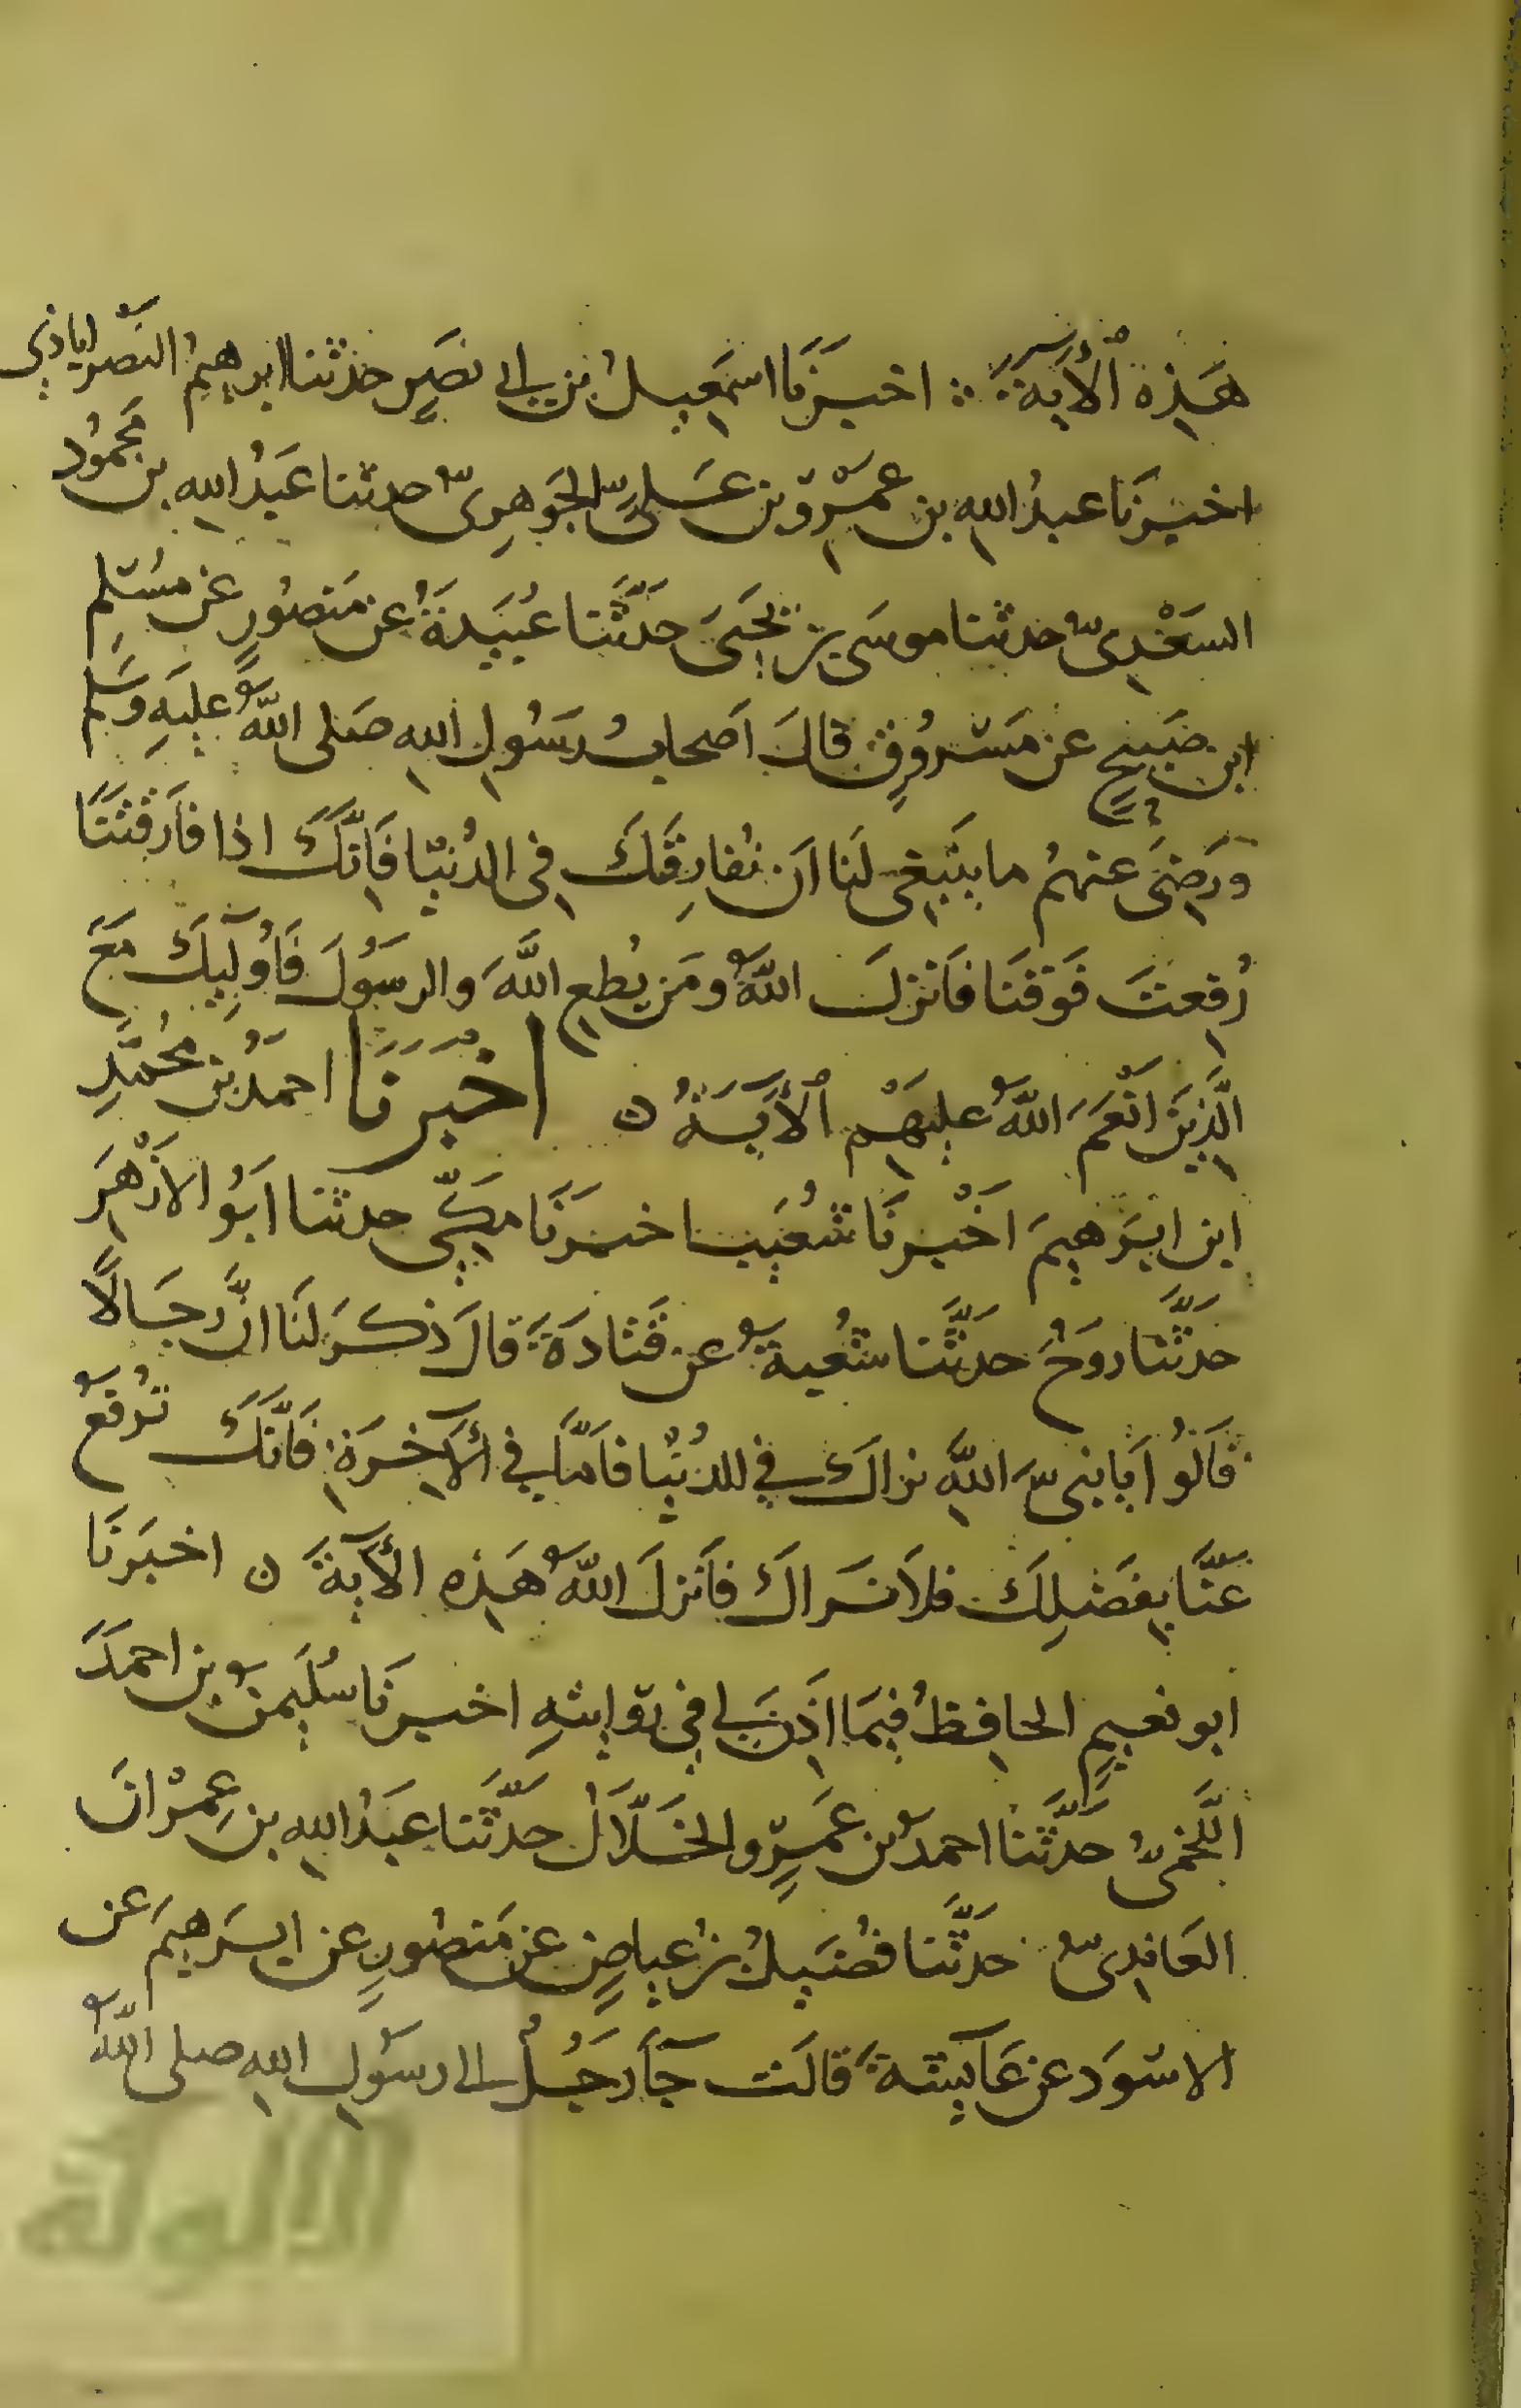 هَذِهِ الْأَيَةَ ؞ اخبرَنَا اسمَعِيلُ بن ابي نصَرٍ حدثنا ابرهيمُ النَصْراباذي
اخبرَنا عبدُ الله بن عَمْرِو بن عَلىٍّ الجَوهِرىّ حدثنا عَبدُ الله بن محمُود
السَعْدِىّ حدثنا موسَى بن يَحيَى حَدَّثَنا عُبَيدَةُ عن مَنصُورٍ عَن مسُلمِ
ابن صُبَيحٍ عن مَسْروُقٍ قالَ اَصحابُ رسَوُلِ اللهِ صَلى اللهُ عليَهِ وَسَلم
ورَضِىَ عنهمُ ما ينَبَغى لَنا اَن نُفارِقَكَ فى الدُنيَا فَاِنّكَ اذا فاَرَقتَنَا
رُفِعتَ فَوقَنَا فَانَزلَ اللهُ ومَن يُطِعِ اللهَ والرسَوُلَ فَأوُلَئِكَ مَعَ
الَّذِينَ اَنْعَمَ اللهُ عليَهِمْ الأَيَةُ ن اخبَرنَا احمَدُ بن محُمَّدِ
ابن ابرَهيِمَ اَخْبرنَا شُعَيب اخبرَنَا مَكِّى حدثنا اَبَوُ الاَزْهَرِ
حَدَّثَنا رَوحُ حَدثَّنَا شُعْبة عن قَتادَةَ قالَ ذكرَ لَنَا انَّ رِجَالًا
قَالوُا يَا نبىَّ اللهِ نراكَ في الدُنيْا فاَمَّا في الأَخِرَةِ فَانَّكَ تُرفَعُ
عَنَّا بِفَضلِكَ فلاَ نَراكَ فاَنَزلَ اللهُ هَذِهِ الأَيةَ ن اخبَرنَا
ابو نعَيمٍ الحافِظُ فيمَا اَذِنَ لي في رِوايتهِ اخبرنَا سُلَيمنُ بن احمدَ
اللَّخمىُّ حَدَّثَنا احمدُ بن عَمرٍو الخَلَّالُ حَدَّثَنا عَبدُ اللهِ بن عِمْرانَ
العَابِدىُّ حَدَّثَنا فُضَيلُ بنُ عِياضٍ عن مَنصُورٍ عن ابرَهيِمَ عن
الاسَوَد عن عَائِشَةَ قالَت جَآءَ رَجُلٌ الى رسَوُلِ اللهِ صلى اللهُ
الألوكة